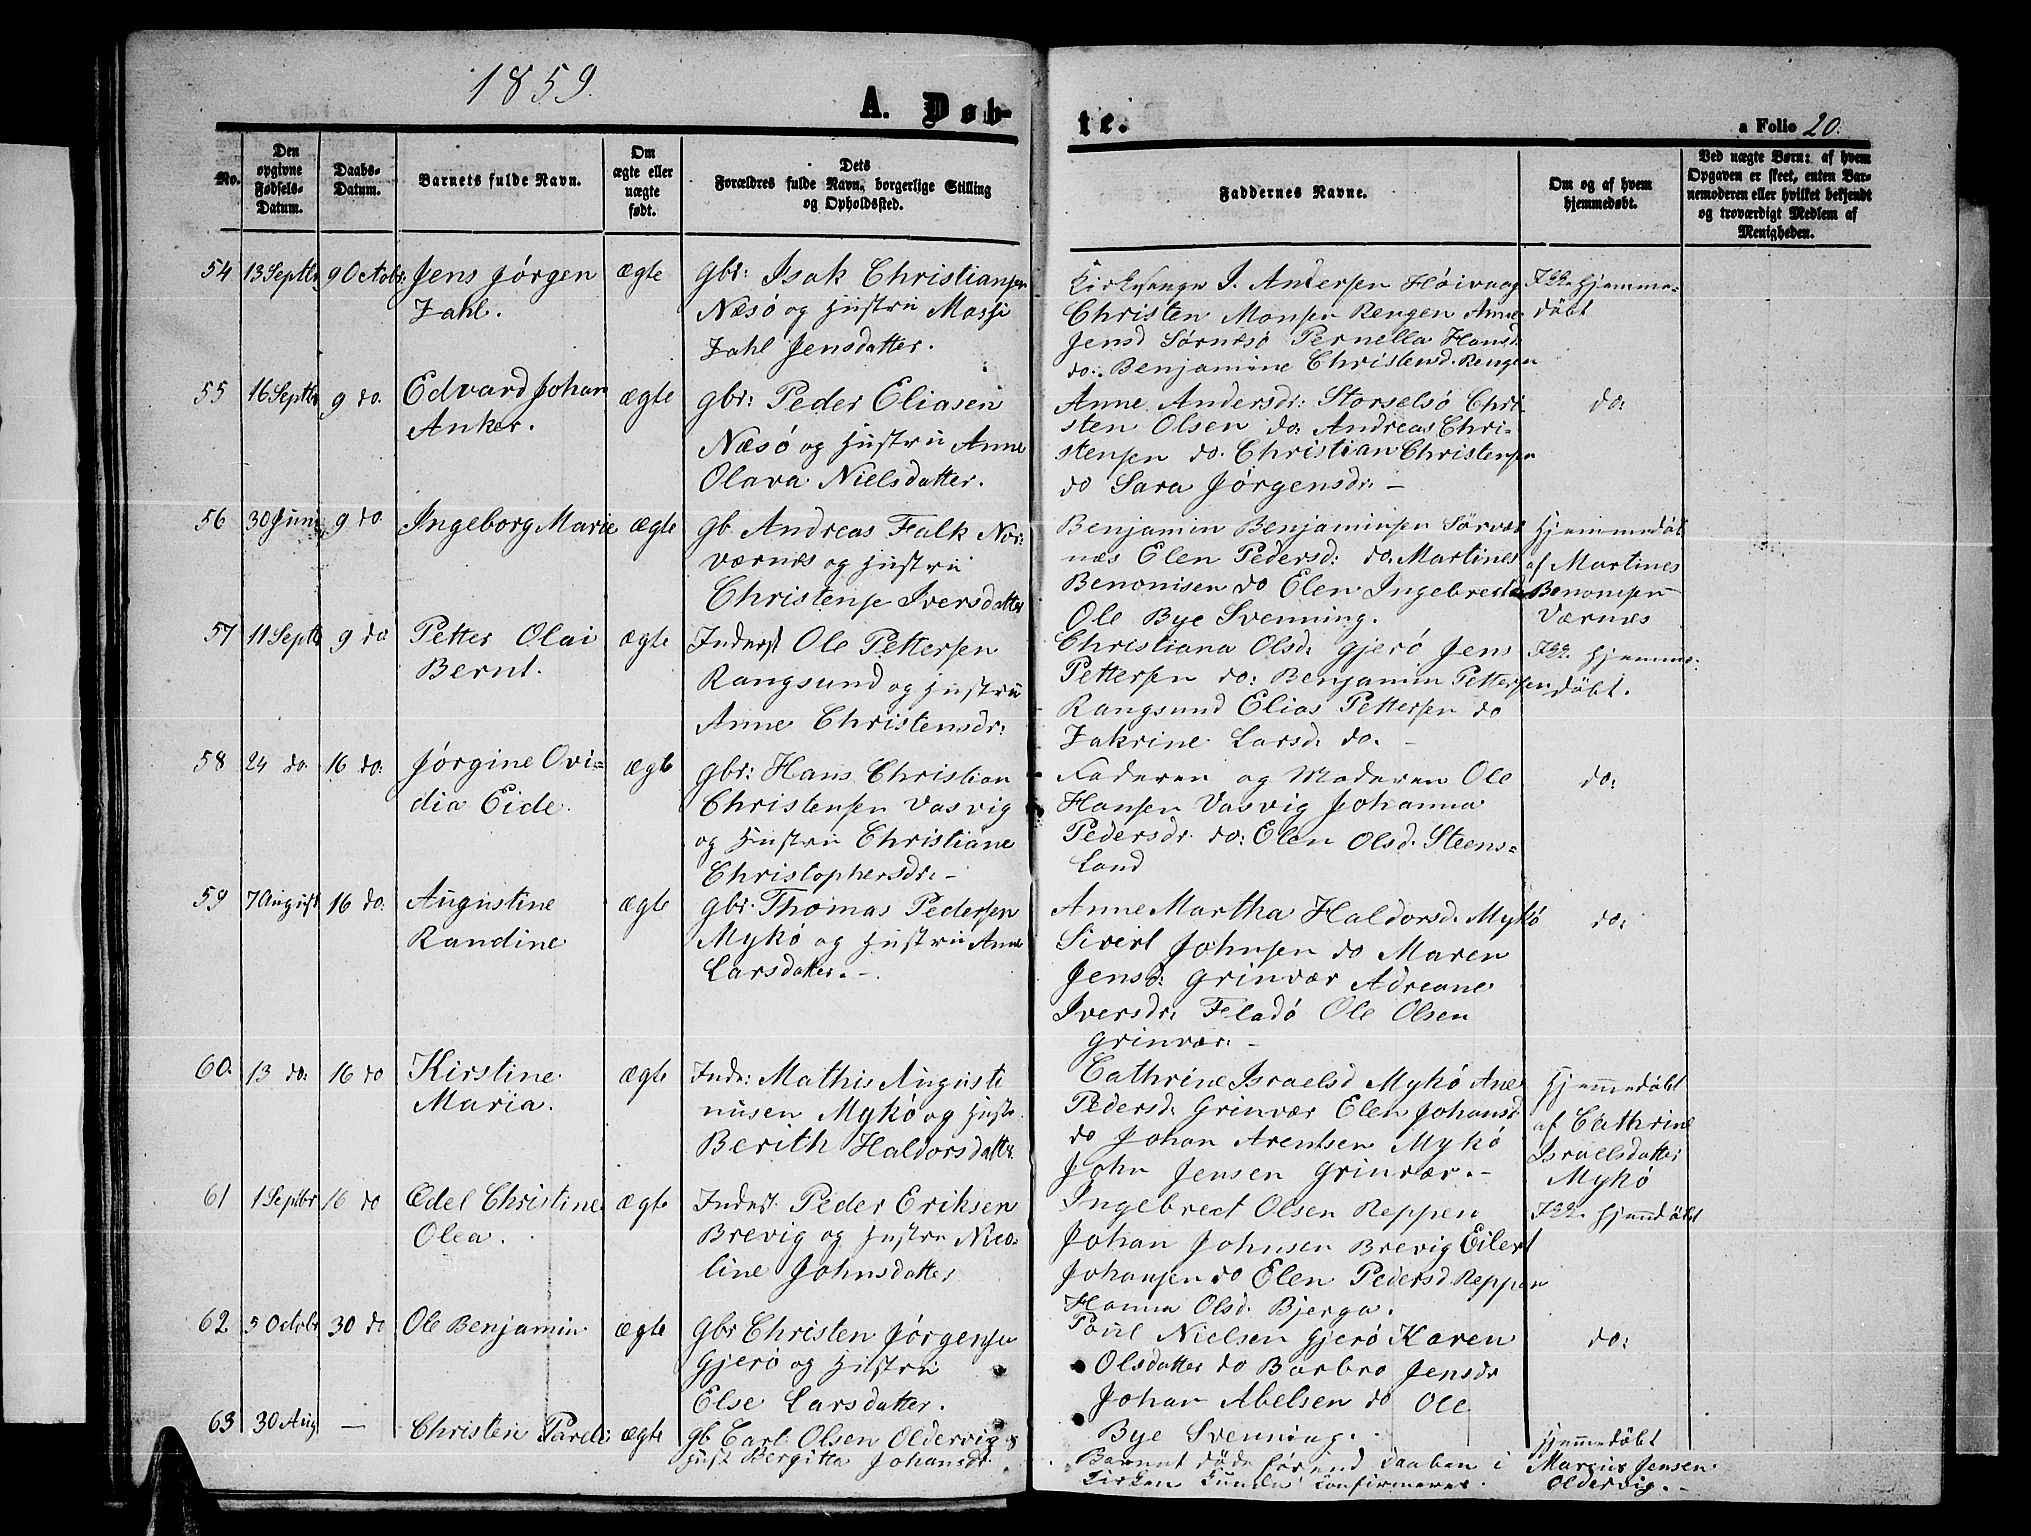 1859.
A. Døb-
te.
a Folio 20.
No.
Den
opgivne
Fødsels-
Datum.
Daabs-
Datum.
Barnets fulde Navn.
Om
ægte eller
uægte
født.
Dets
Forældres fulde Navn, borgerlige Stilling
og Opholdssted.
Faddernes Navne.
Om og af hvem
hjemmedøbt.
Ved uægte Børn: af hvem
Opgaven er skeet, enten Bar-
nemoderen eller hvilket bekjendt
og troværdigt Medlem af
Menigheden.
54 13 Septbr 9 Octobr: Jens Jørgen ægte gbr: Isak Christiansen
Zahl. Næsø og Hustru Massi
Zahl Jensdatter.
Kirkesanger J. Andersen Høivaag
Christen Monsen Rengen Anne
Jensd Sørnesø Pernella Hansd:
do: Benjamine Christensd. Rengen
Ikke Hjemme-
døbt
55 16 Septbr 9 do. Edvard Johan ægte gbr: Peder Eliasen
Anker. Næsø og Hustru Anne
Olava Nielsdatter.
Anne Andersdr: Storselsø Chri-
sten Olsen do: Andreas Chri-
stensen do. Christian Christensen
do Sara Jørgensdr: -
do:
56 30 Juni 9 do Ingeborg Marie ægte gb Andreas Falk Nor-
værnes og Hustru
Christense Iversdatter
Benjamin Benjaminsen Sørvær
næs Elen Pedersd: do. Martines
Benonisen do Elen Ingebretsd
Ole Bye Svenning.
Hjemmedøbt
af Martines
Benonisen
Værnes
57 11 Septb 9 do Petter Olai ægte Inderst Ole Pettersen
Bernt. Rangsund og Hustru
Anne Christensdr:
Christiana Olsd. Gjerø Jens
Pettersen do: Benjamin Pettersen
Rangsund Elias Pettersen do
Zakrine Larsd. do. -
Ikke Hjemme-
døbt.
58 24 do. 16 do: Jørgine Ovi- ægte gbr: Hans Christian
dia Eide. Christensen Vasvig
og Hustru Christiane
Christophersdr: -
Faderen og Moderen Ole
Hansen Vasvig Johanna
Pedersdr. do: Elen Olsd. Steens-
land
do:
59 7 August 16 do: Augustine ægte gbr. Thomas Pedersen
Randine Mykø og Hustru Anne
Larsdatter. -
Anne Martha Haldorsd. Mykø
Sivert Johnsen do Maren
Jensd: Grinvær Adreane
Iversdr: Fladø Ole Olsen
Grinvær: -
do:
60. 13 do: 16 do Kirstine ægte Inds: Mathis Augusti
Maria. nusen Mykø og Hustr.
Berith Haldorsdatter
Cathrine Israelsd Mykø Ane
Pedersd. Grinvær Elen Johansd
do Johan Arentsen Mykø
John Jensen Grinvær. -
Hjemmedøbt
af Cathrine
Israelsdatter
Mykø
61 1 Septbr 16 do Edel Christine ægte Indest. Peder Eriksen
Olea. Brevig og Hustru Nico-
line Johnsdatter
Ingebrect Olsen Reppen
Johan Johnsen Brevig Eilert
Johansen do Elen Pedersd Reppen
Hanna Olsd. Bjerga.
Ikke Hjemmdøbt
62 5 Octobr 30 do Ole Benjamin ægte gbr Christen Jørgensen
Gjerø og Hustru
Else Larsdatter.
Poul Nielsen Gjerø Karen
Olsdatter do Barbro Jensdr
Johan Abelsen do Ole
Bye Svenning. -
do:
63 30 Aug — Christen Pareli ægte gb Carl Olsen Oldervig &
Hust Bergitta Johansdr.
Barnet døde førend Daaben i
Kirken kunde confirmeres.
Hjemmedøbt
Marcus Jensen
Oldervig. -